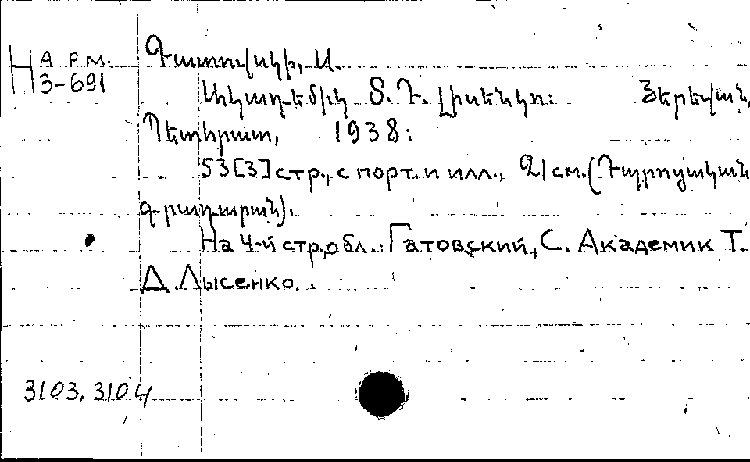 А Р М.
3-691
Գատովսկի, Ս.
Ակադեմիկ Տ. Դ. Լիսենկո: Յերեվան,
Պետհրատ, 1938:
53[3] стр., с порт. и илл., 21 см. (Դպրոցական
գրադարան).
На 4-й стр. обл.: Гатовский, С. Академик Т.
Д. Лысенко.
3103. 3104